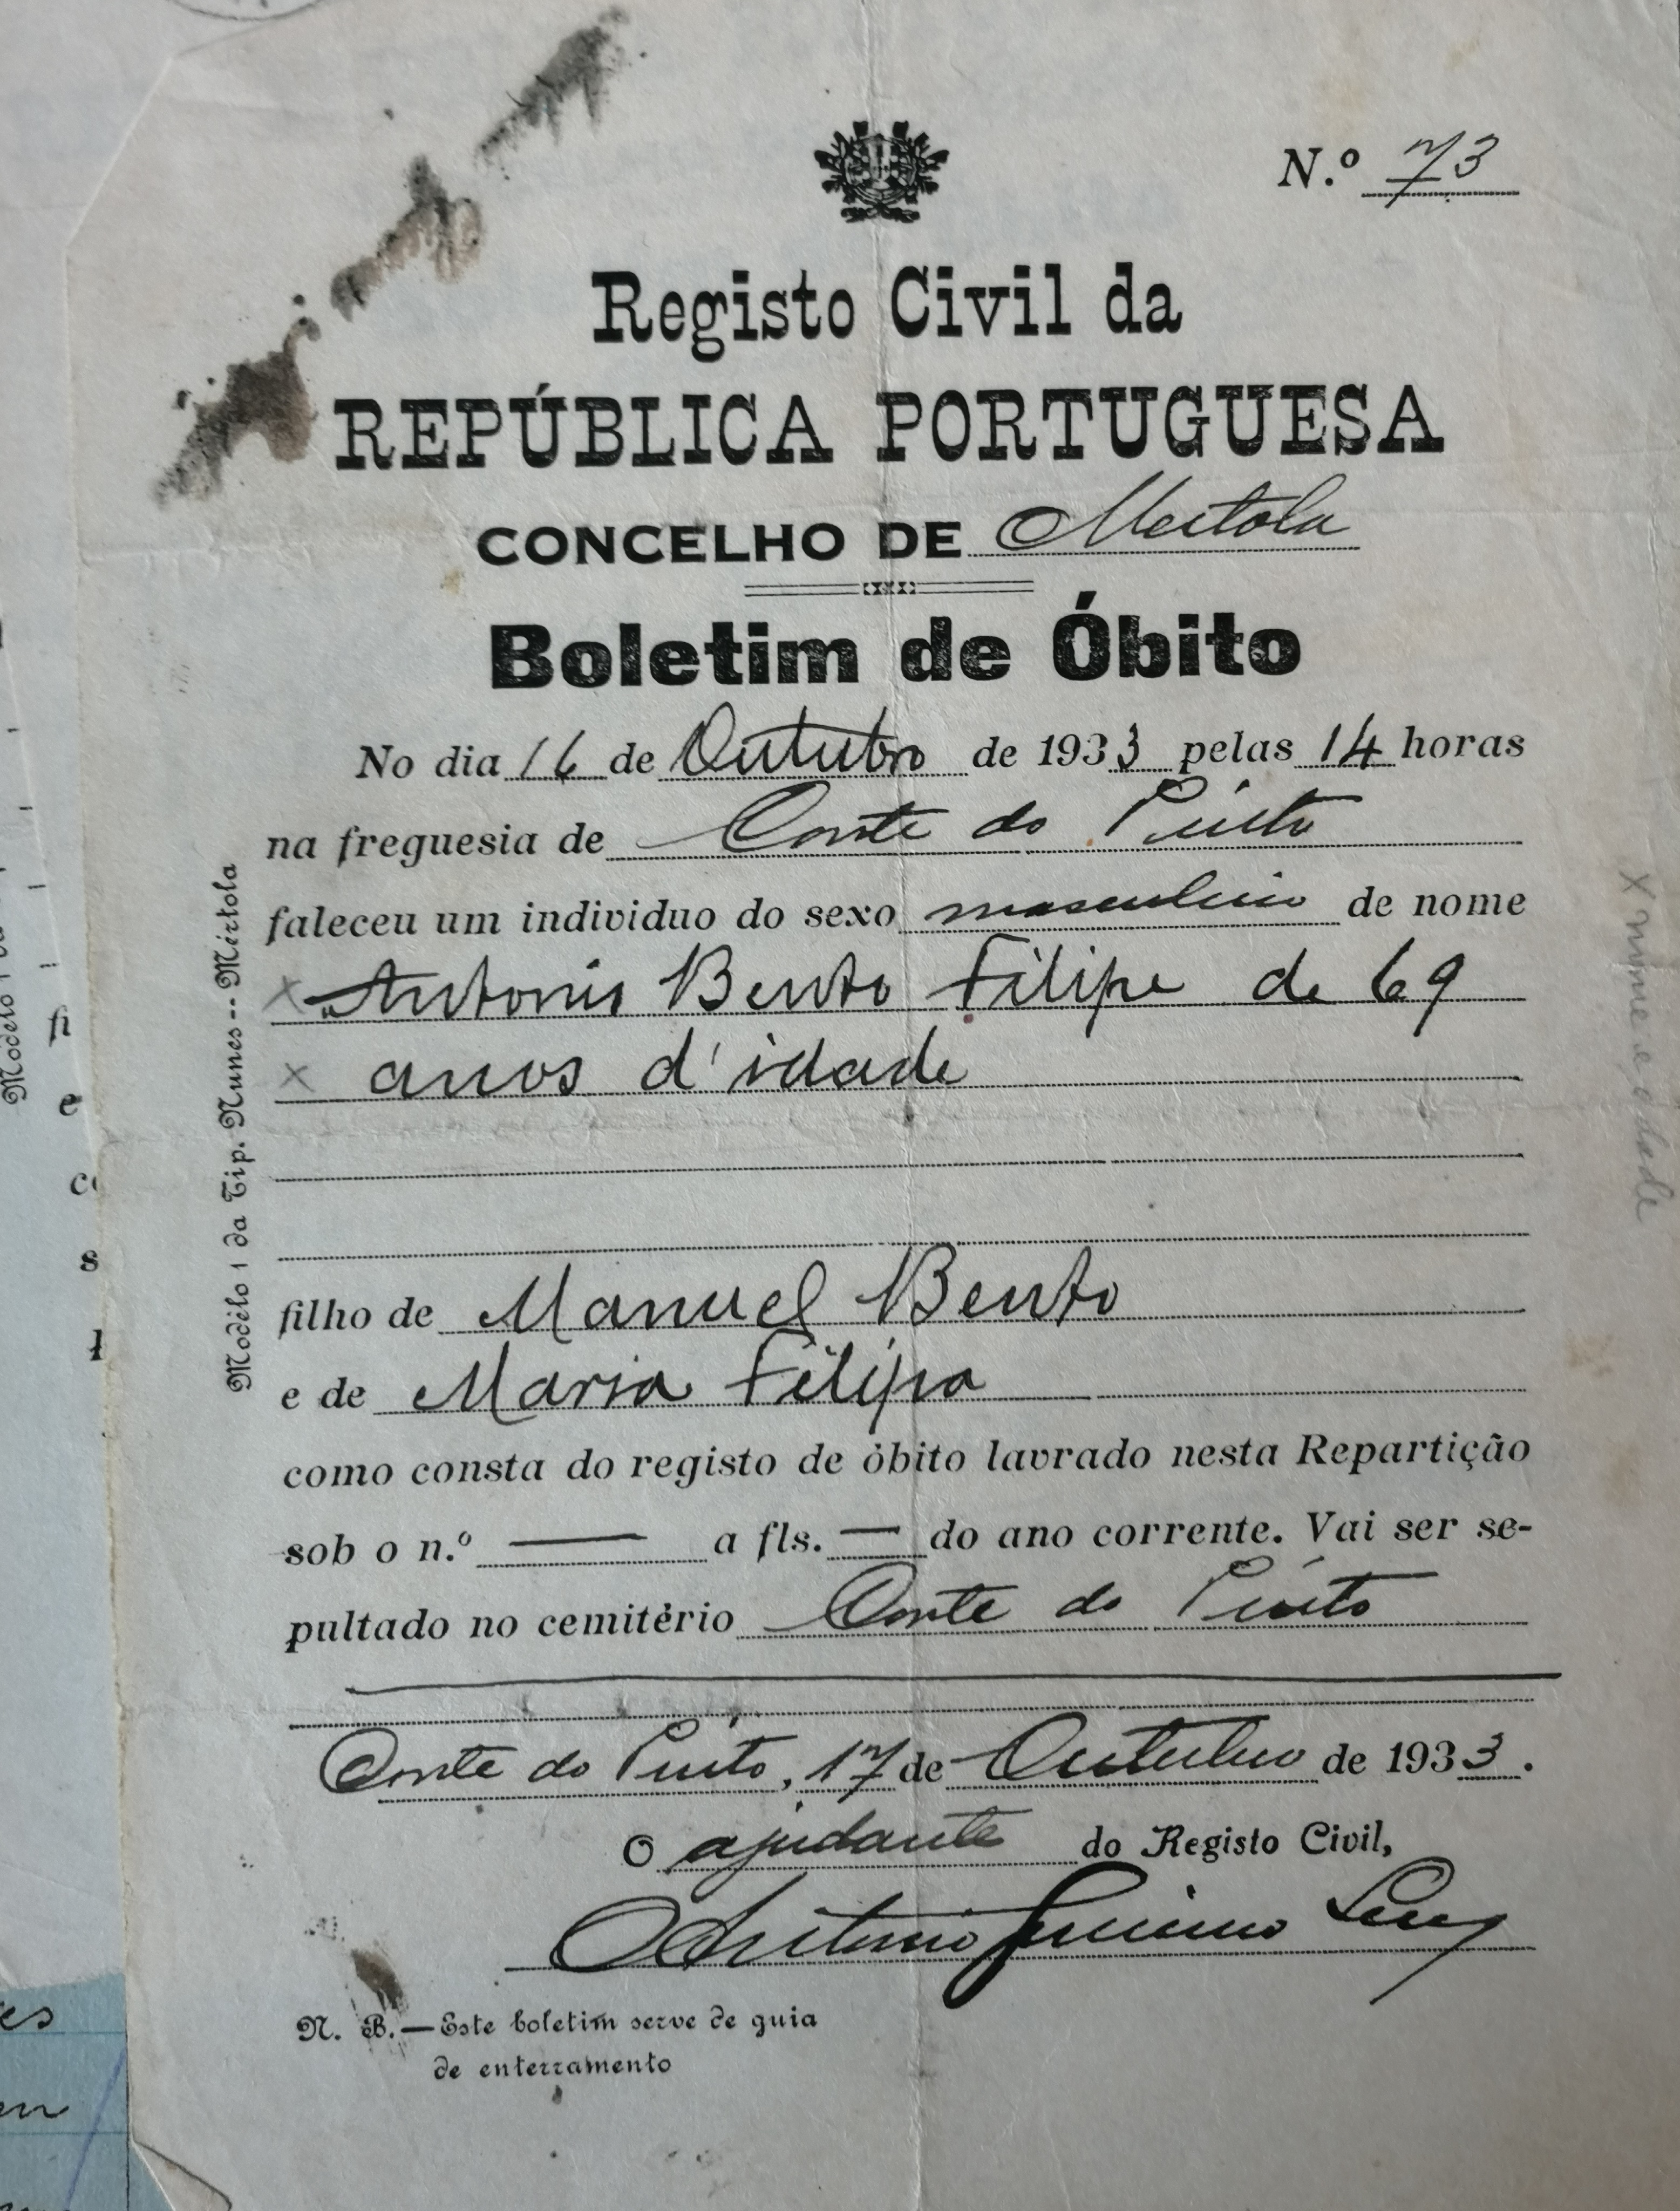 N.º 73
Registo Civil da
REPÚBLICA PORTUGUESA
CONCELHO DE Mertola
Boletim de Óbito
No dia 16 de Outubro de 1933 pelas 14 horas
na freguesia de Corte do Pinto
faleceu um individuo do sexo masculino de nome
x Antonio Bento Filipe de 69
x anos d'idade
filho de Manuel Bento
e de Maria Filipa
como consta do registo de óbito lavrado nesta Repartição
sob o n.º — a fls. — do ano corrente. Vai ser se-
pultado no cemitério Corte do Pinto
Corte do Pinto, 17 de Outubro de 1933.
O ajudante do Registo Civil,
Antonio
N. B.—Este boletim serve de guia
de enterramento
Modêlo 1 da Tip. Nunes -- Mértola
X nome e idade